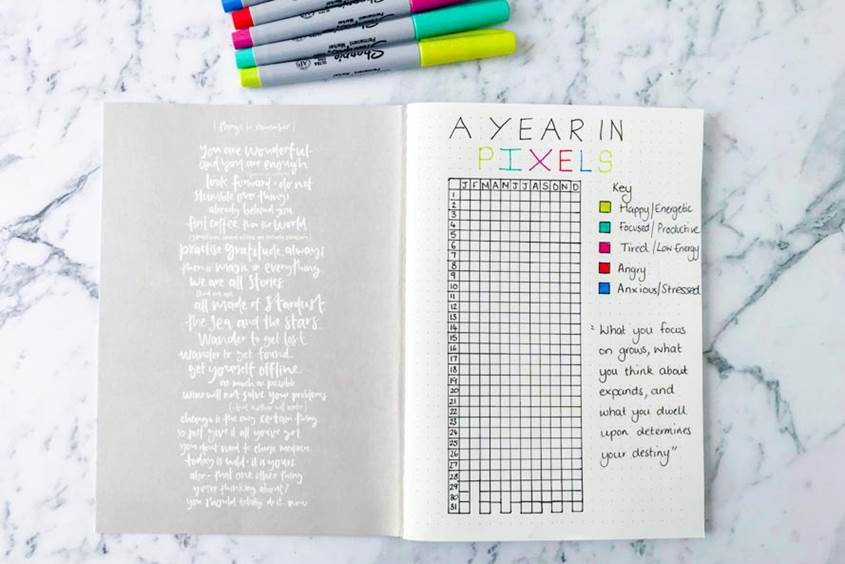 Sharpie
Permanent Marker
(things to remember)
you are wonderful
and you are enough
look forward - do not
stumble over things
already behind you
first coffee then the world
practise gratitude always
there is magic in everything
we are all stories
all made of stardust
the sea and the stars
wander to get lost
wander to get found
get yourself offline
as much as possible
wine will not solve your problems
change is the only certain thing
so just give it all you've got
you don't need to choose
today is wild - it is yours
also - that one other thing
you're thinking about?
you should totally do it. now
A YEAR IN
PIXELS
J F M A M J J A S O N D
1
2
3
4
5
6
7
8
9
10
11
12
13
14
15
16
17
18
19
20
21
22
23
24
25
26
27
28
29
30
31
Key
Happy/Energetic
Focused/Productive
Tired/Low Energy
Angry
Anxious/Stressed
"What you focus
on grows, what
you think about
expands, and
what you dwell
upon determines
your destiny"